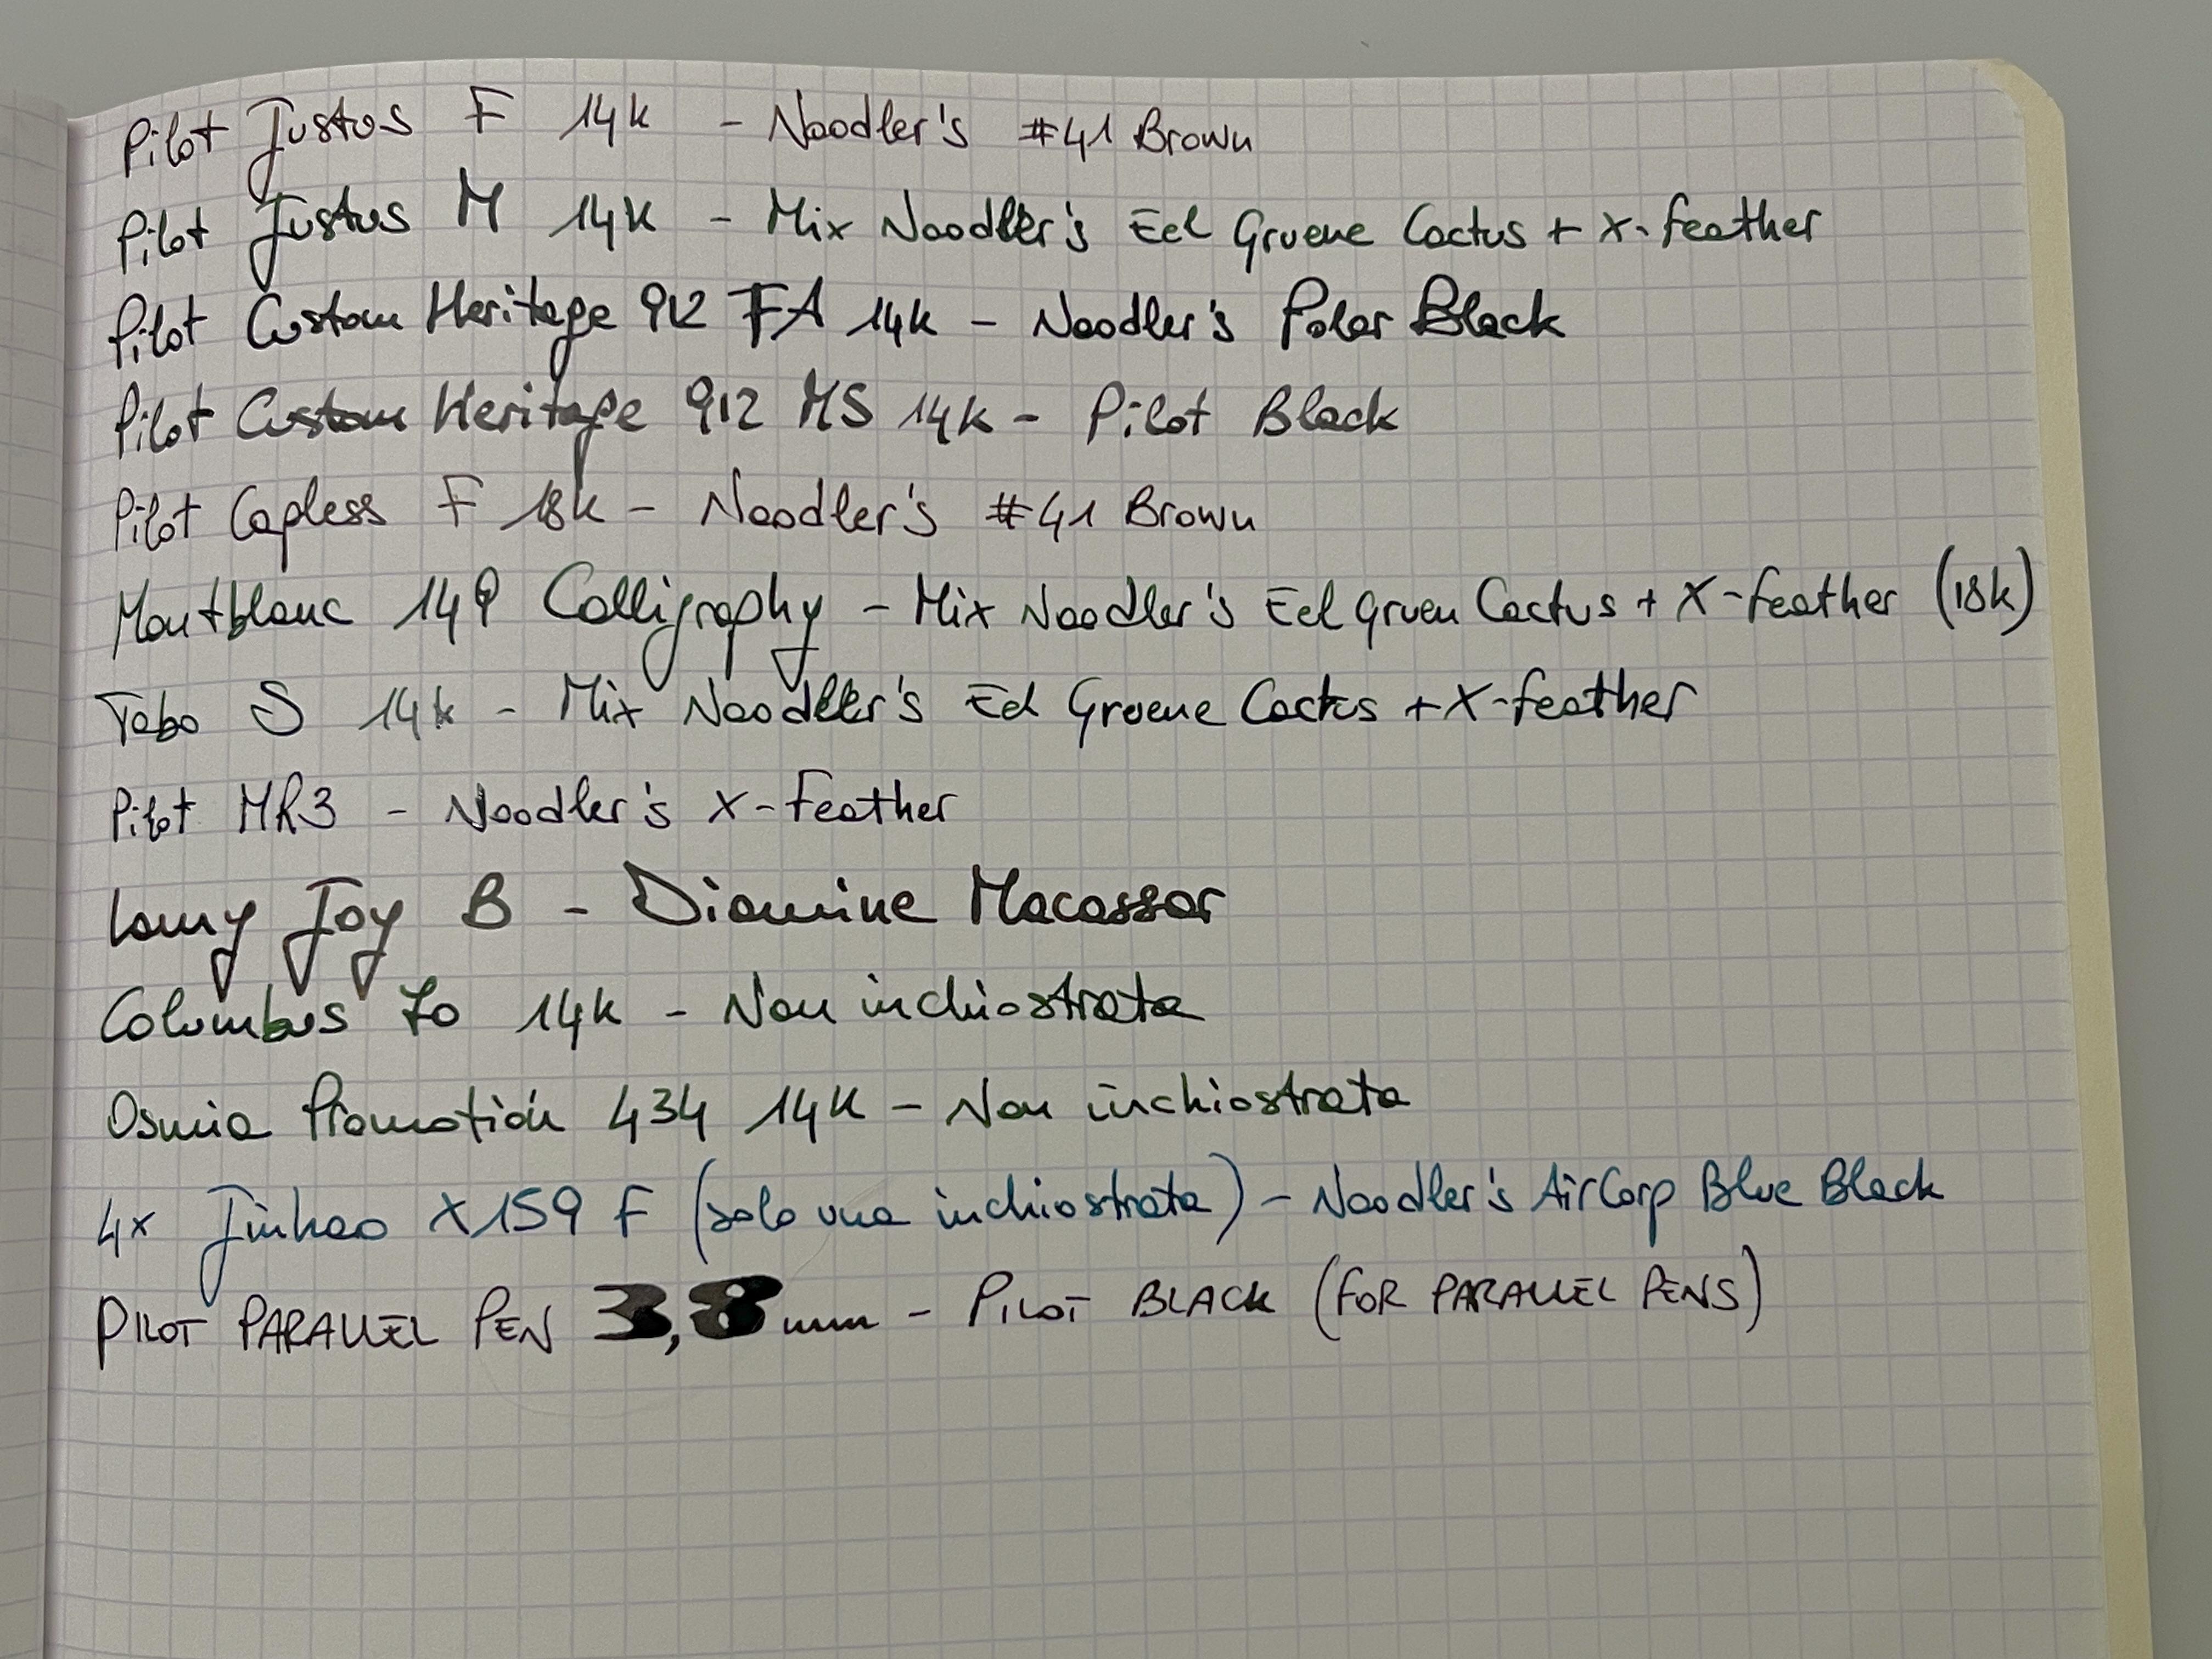 Pilot Justus F 14k - Noodler's #41 Brown
Pilot Justus M 14k - Mix Noodler's Eel Gruene Cactus + X-feather
Pilot Custom Heritage 912 FA 14k - Noodler's Polar Black
Pilot Custom Heritage 912 MS 14k - Pilot Black
Pilot Capless F 18k - Noodler's #41 Brown
Montblanc 149 Calligraphy - Mix Noodler's Eel Gruen Cactus + X-feather (18k)
Tabo S 14k - Mix Noodler's Eel Gruene Cactus + X-feather
Pilot MR3 - Noodler's X-Feather
Lamy Joy B - Diamine Macassar
Columbus 14k - Non inchiostrata
Osmia Promotion 434 14k - Non inchiostrata
4x Jinhao X159 F (solo una inchiostrata) - Noodler's AirCorp Blue Black
PILOT PARALLEL PEN 3,8 mm - PILOT BLACK (FOR PARALLEL PENS)